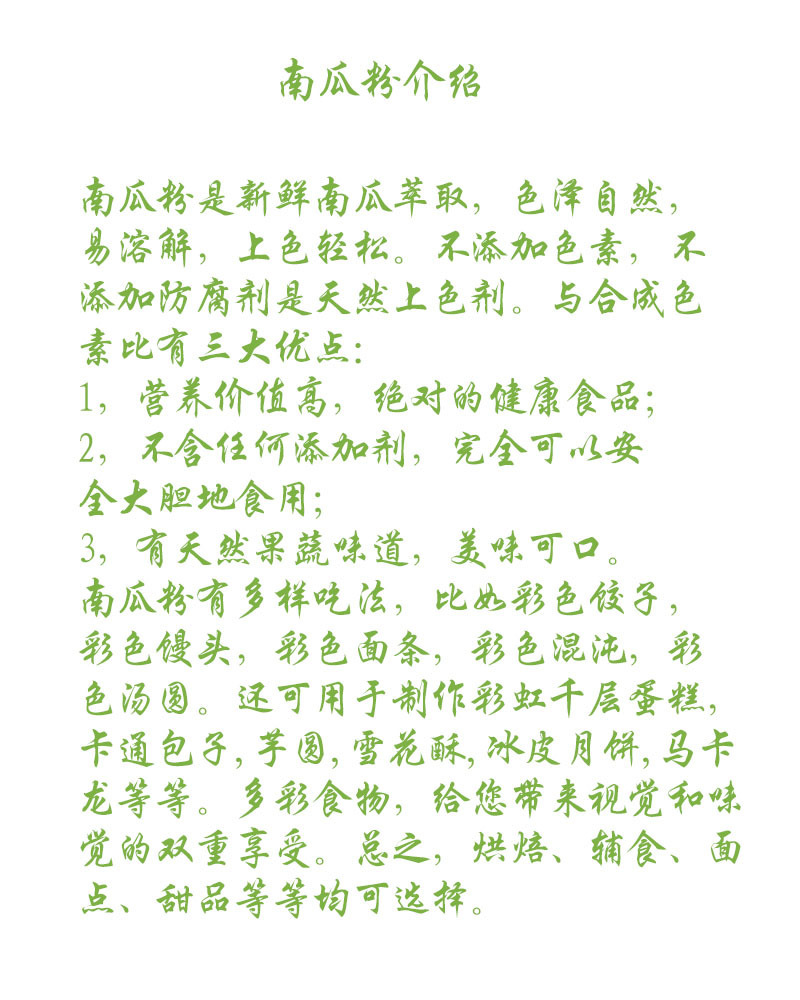 南瓜粉介绍
南瓜粉是新鲜南瓜萃取，色泽自然，
易溶解，上色轻松。不添加色素，不
添加防腐剂是天然上色剂。与合成色
素比有三大优点：
1，营养价值高，绝对的健康食品；
2，不含任何添加剂，完全可以安
全大胆地食用；
3，有天然果蔬味道，美味可口。
南瓜粉有多样吃法，比如彩色饺子，
彩色馒头，彩色面条，彩色混沌，彩
色汤圆。还可用于制作彩虹千层蛋糕，
卡通包子,芋圆,雪花酥,冰皮月饼,马卡
龙等等。多彩食物，给您带来视觉和味
觉的双重享受。总之，烘焙、辅食、面
点、甜品等等均可选择。